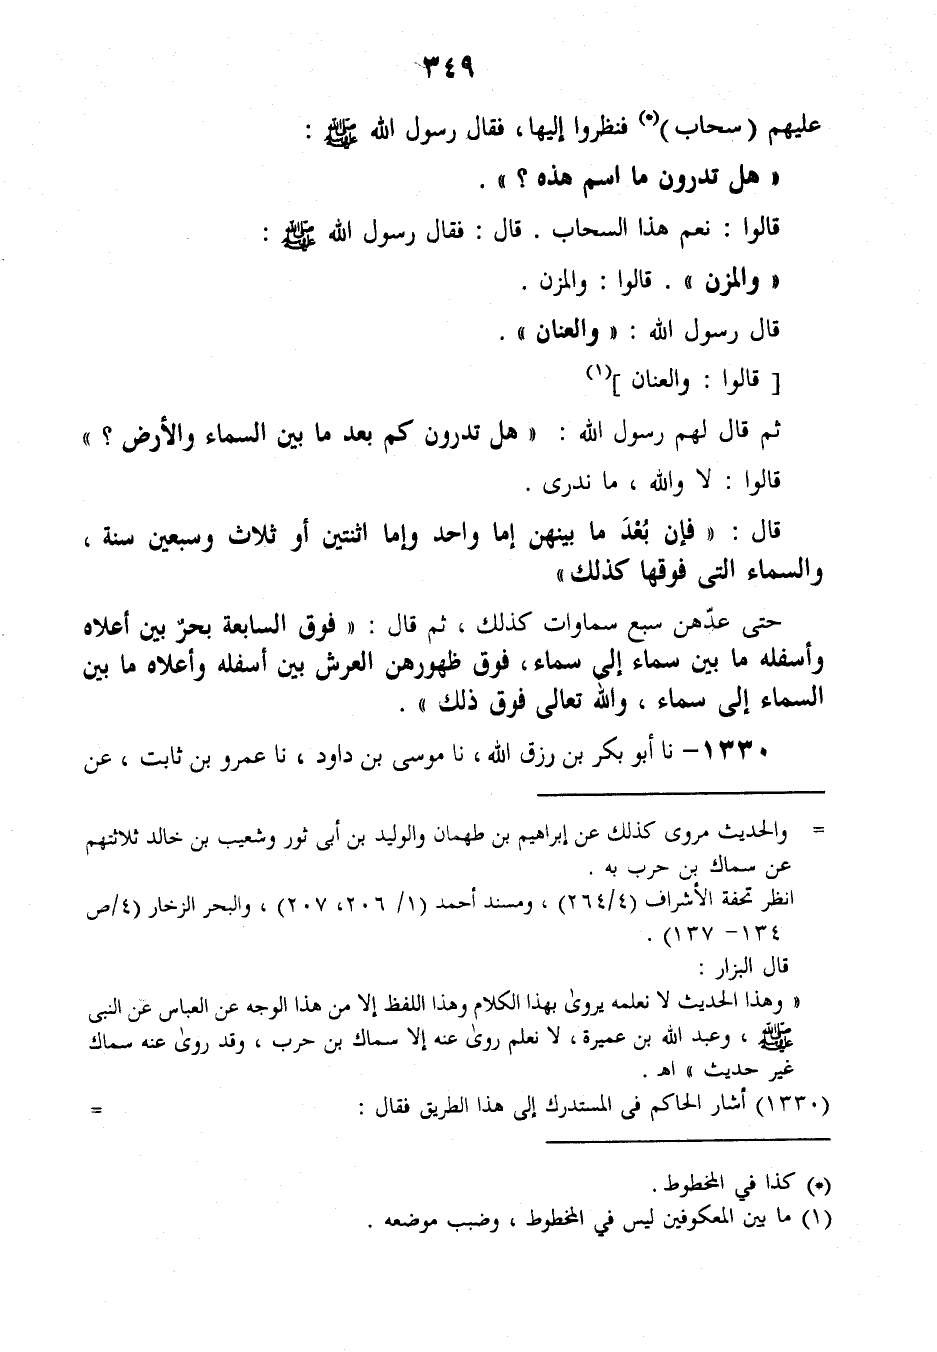 ٣٤٩
عليهم ( سحاب )(*) فنظروا إليها ، فقال رسول الله ﷺ :
« هل تدرون ما اسم هذه ؟ » .
قالوا : نعم هذا السحاب . قال : فقال رسول الله ﷺ :
« والمزن » . قالوا : والمزن .
قال رسول الله : « والعنان » .
[ قالوا : والعنان ](١)
ثم قال لهم رسول الله : « هل تدرون كم بعد ما بين السماء والأرض ؟ »
قالوا : لا والله ، ما ندرى .
قال : « فإن بُعْدَ ما بينهن إما واحد وإما اثنتين أو ثلاث وسبعين سنة ،
والسماء التى فوقها كذلك »
حتى عدّهن سبع سماوات كذلك ، ثم قال : « فوق السابعة بحرٌ بين أعلاه
وأسفله ما بين سماء إلى سماء ، فوق ظهورهن العرش بين أسفله وأعلاه ما بين
السماء إلى سماء ، والله تعالى فوق ذلك » .
١٣٣٠- نا أبو بكر بن رزق الله ، نا موسى بن داود ، نا عمرو بن ثابت ، عن
= والحديث مروى كذلك عن إبراهيم بن طهمان والوليد بن أبى ثور وشعيب بن خالد ثلاثتهم
عن سماك بن حرب به .
انظر تحفة الأشراف (٢٦٤/٤) ، ومسند أحمد (١/ ٢٠٦، ٢٠٧) ، والبحر الزخار (٤/ص
١٣٤- ١٣٧) .
قال البزار :
« وهذا الحديث لا نعلمه يروىٰ بهذا الكلام وهذا اللفظ إلا من هذا الوجه عن العباس عن النبى
ﷺ ، وعبد الله بن عميرة ، لا نعلم روىٰ عنه إلا سماك بن حرب ، وقد روىٰ عنه سماك
غير حديث » اهـ .
(١٣٣٠) أشار الحاكم فى المستدرك إلى هذا الطريق فقال : =
(*) كذا في المخطوط .
(١) ما بين المعكوفين ليس في المخطوط ، وضبب موضعه .